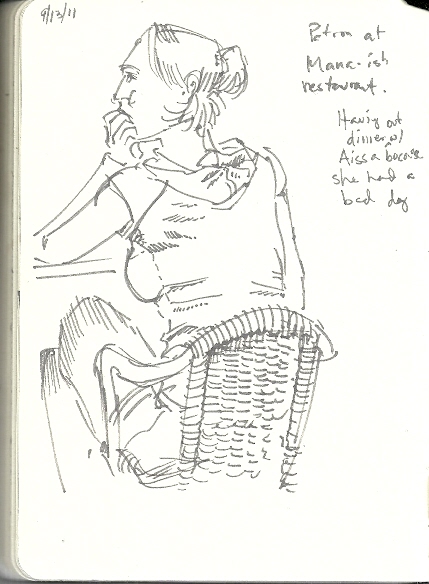 9/13/11
Patron at
Mana-ish
restaurant.
Having out
dinner w/
Aissa because
she had a
bad day